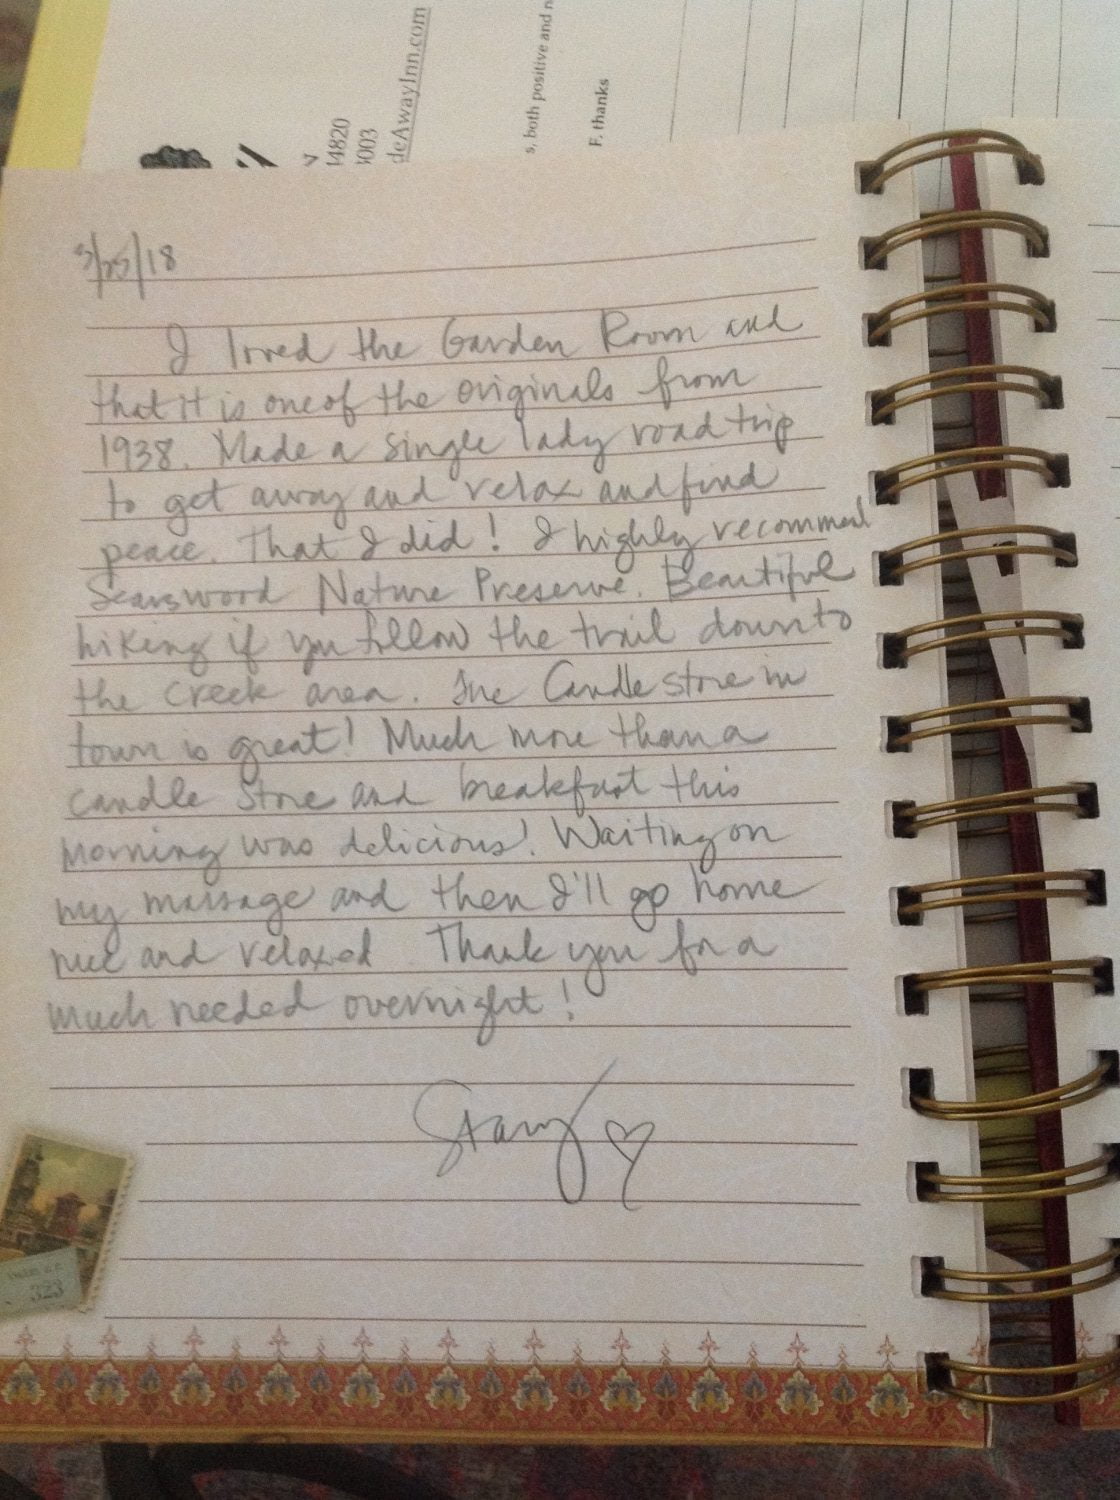 44820
deAwayInn.com
s, both positive and n
F. thanks
3/25/18
I loved the Garden Room and
that it is one of the originals from
1938. Made a single lady road trip
to get away and relax and find
peace. That I did! I highly recommend
Searswood Nature Preserve. Beautiful
hiking if you follow the trail down to
the creek area. The Candle store in
town is great! Much more than a
candle store and breakfast this
morning was delicious! Waiting on
my massage and then I'll go home
nice and relaxed. Thank you for a
much needed overnight!
323